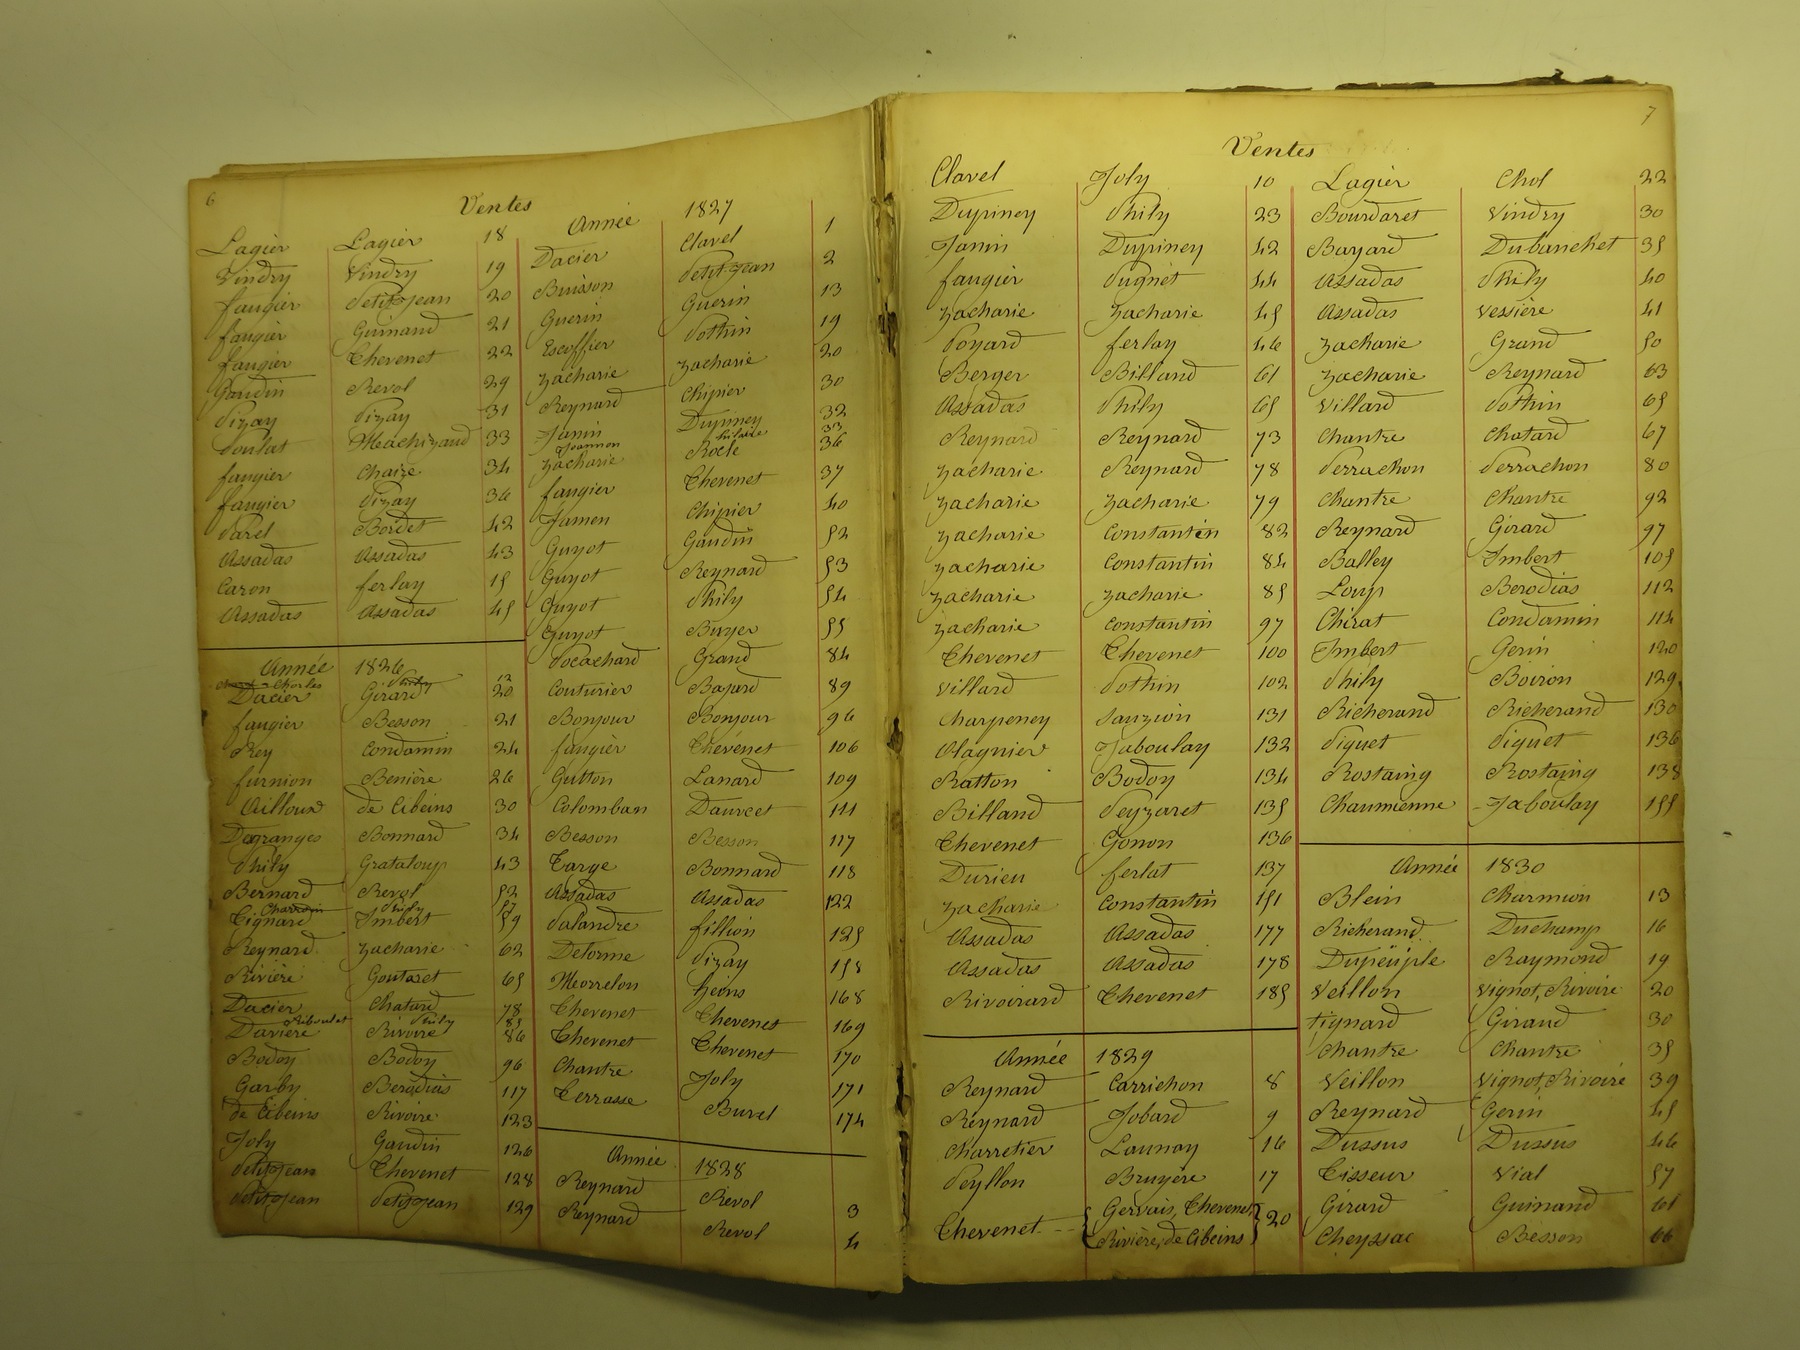 6
Ventes
Lagier Lagier 18
Vindry Vindry 19
faugier Petitjean 20
faugier Guinand 21
faugier Chevenet 22
Gaudin Revol 29
Pizay Pizay 31
Poulat Meachizaud 33
faugier Chaize 34
faugier Pizay 36
Parel Bordet 42
Assadas Assadas 43
Caron ferlay 15
Assadas Assadas 45
Année 1826
Charles Phily 12
Dacier Girard 20
faugier Besson 21
Rey Condamin 24
furnion Benière 26
Ailloud de Cibeins 30
Degranges Bonnard 34
Phily Grataloup 43
Bernard Revol 52
Charroin Phily 57
Tignard Imbert 59
Reynard Zacharie 62
Rivière Goutaret 65
Dacier Chatard 78
Riboulet Phily 85
Davière Rivoire 86
Bodoy Bodoy 96
Garby Berodias 117
de Cibeins Rivoire 123
Joly Gaudin 126
Petitjean Chevenet 128
Petitjean Petitjean 129
Année 1827
Dacier Clavel 1
Buisson Petitjean 2
Guerin Guerin 13
Escoffier Pothin 19
Zacharie Zacharie 20
Reynard Chipier 30
Janin Dupiney 32
Joannon hilaire 33
Zacharie Rocle 36
faugier Chevenet 37
Jamen Chipier 40
Guyot Gaudin 52
Guyot Reynard 53
Guyot Phily 54
Guyot Buyer 55
Pocachard Grand 84
Couturier Bajard 89
Bonjour Bonjour 96
faugier Chevenet 106
Gutton Lanard 109
Colomban Dauvet 111
Besson Besson 117
Targe Bonnard 118
Assadas Assadas 122
Palandre fillion 125
Delorme Pizay 158
Morrelon hems 168
Chevenet Chevenet 169
Chevenet Chevenet 170
Chantre Joly 171
Terrasse Burel 174
Année 1828
Reynard Revol 3
Reynard Revol 4
7
Ventes
Clavel Joly 10
Dupiney Phily 23
Janin Dupiney 42
faugier Pugnet 44
Zacharie Zacharie 45
Poyard ferlay 46
Berger Billand 61
Assadas Phily 65
Reynard Reynard 73
Zacharie Reynard 78
Zacharie Zacharie 79
Zacharie Constantin 82
Zacharie Constantin 84
Zacharie Zacharie 85
Zacharie Constantin 97
Chevenet Chevenet 100
Villard Pothin 102
Charpeney Sauzion 131
Olagnier Jaboulay 132
Ratton Bodoy 134
Billand Peyzaret 135
Chevenet Gonon 136
Durieu ferlat 137
Zacharie Constantin 151
Assadas Assadas 177
Assadas Assadas 178
Rivoirard Chevenet 185
Année 1829
Reynard Carrichon 8
Reynard Jobard 9
Charretier Launay 16
Peyllon Bruyère 17
Chevenet { Gervais, Chevenet } 20
Rivière, de Cibeins
Lagier Chol 22
Bourdaret Vindry 30
Bayard Dubanchet 35
Assadas Phily 40
Assadas Vessière 41
Zacharie Grand 50
Zacharie Reynard 63
Villard Pothin 65
Chantre Chatard 67
Perrachon Perrachon 80
Chantre Chantre 92
Reynard Girard 97
Balley Imbert 105
Loup Berodias 112
Chirat Condamin 114
Imbert Gerin 120
Phily Boiron 129
Richerand Richerand 130
Piguet Piguet 136
Rostaing Rostaing 138
Chaumienne Jaboulay 155
Année 1830
Blein Charmion 13
Richerand Duchamp 16
Dupeuple Raymond 19
Veillon Vignot, Rivoire 20
Tignard Giraud 30
Chantre Chantre 35
Veillon Vignot, Rivoire 39
Reynard Gerin 45
Dussus Dussus 46
Tisseur Vial 57
Girard Guinand 61
Cheyssac Besson 66